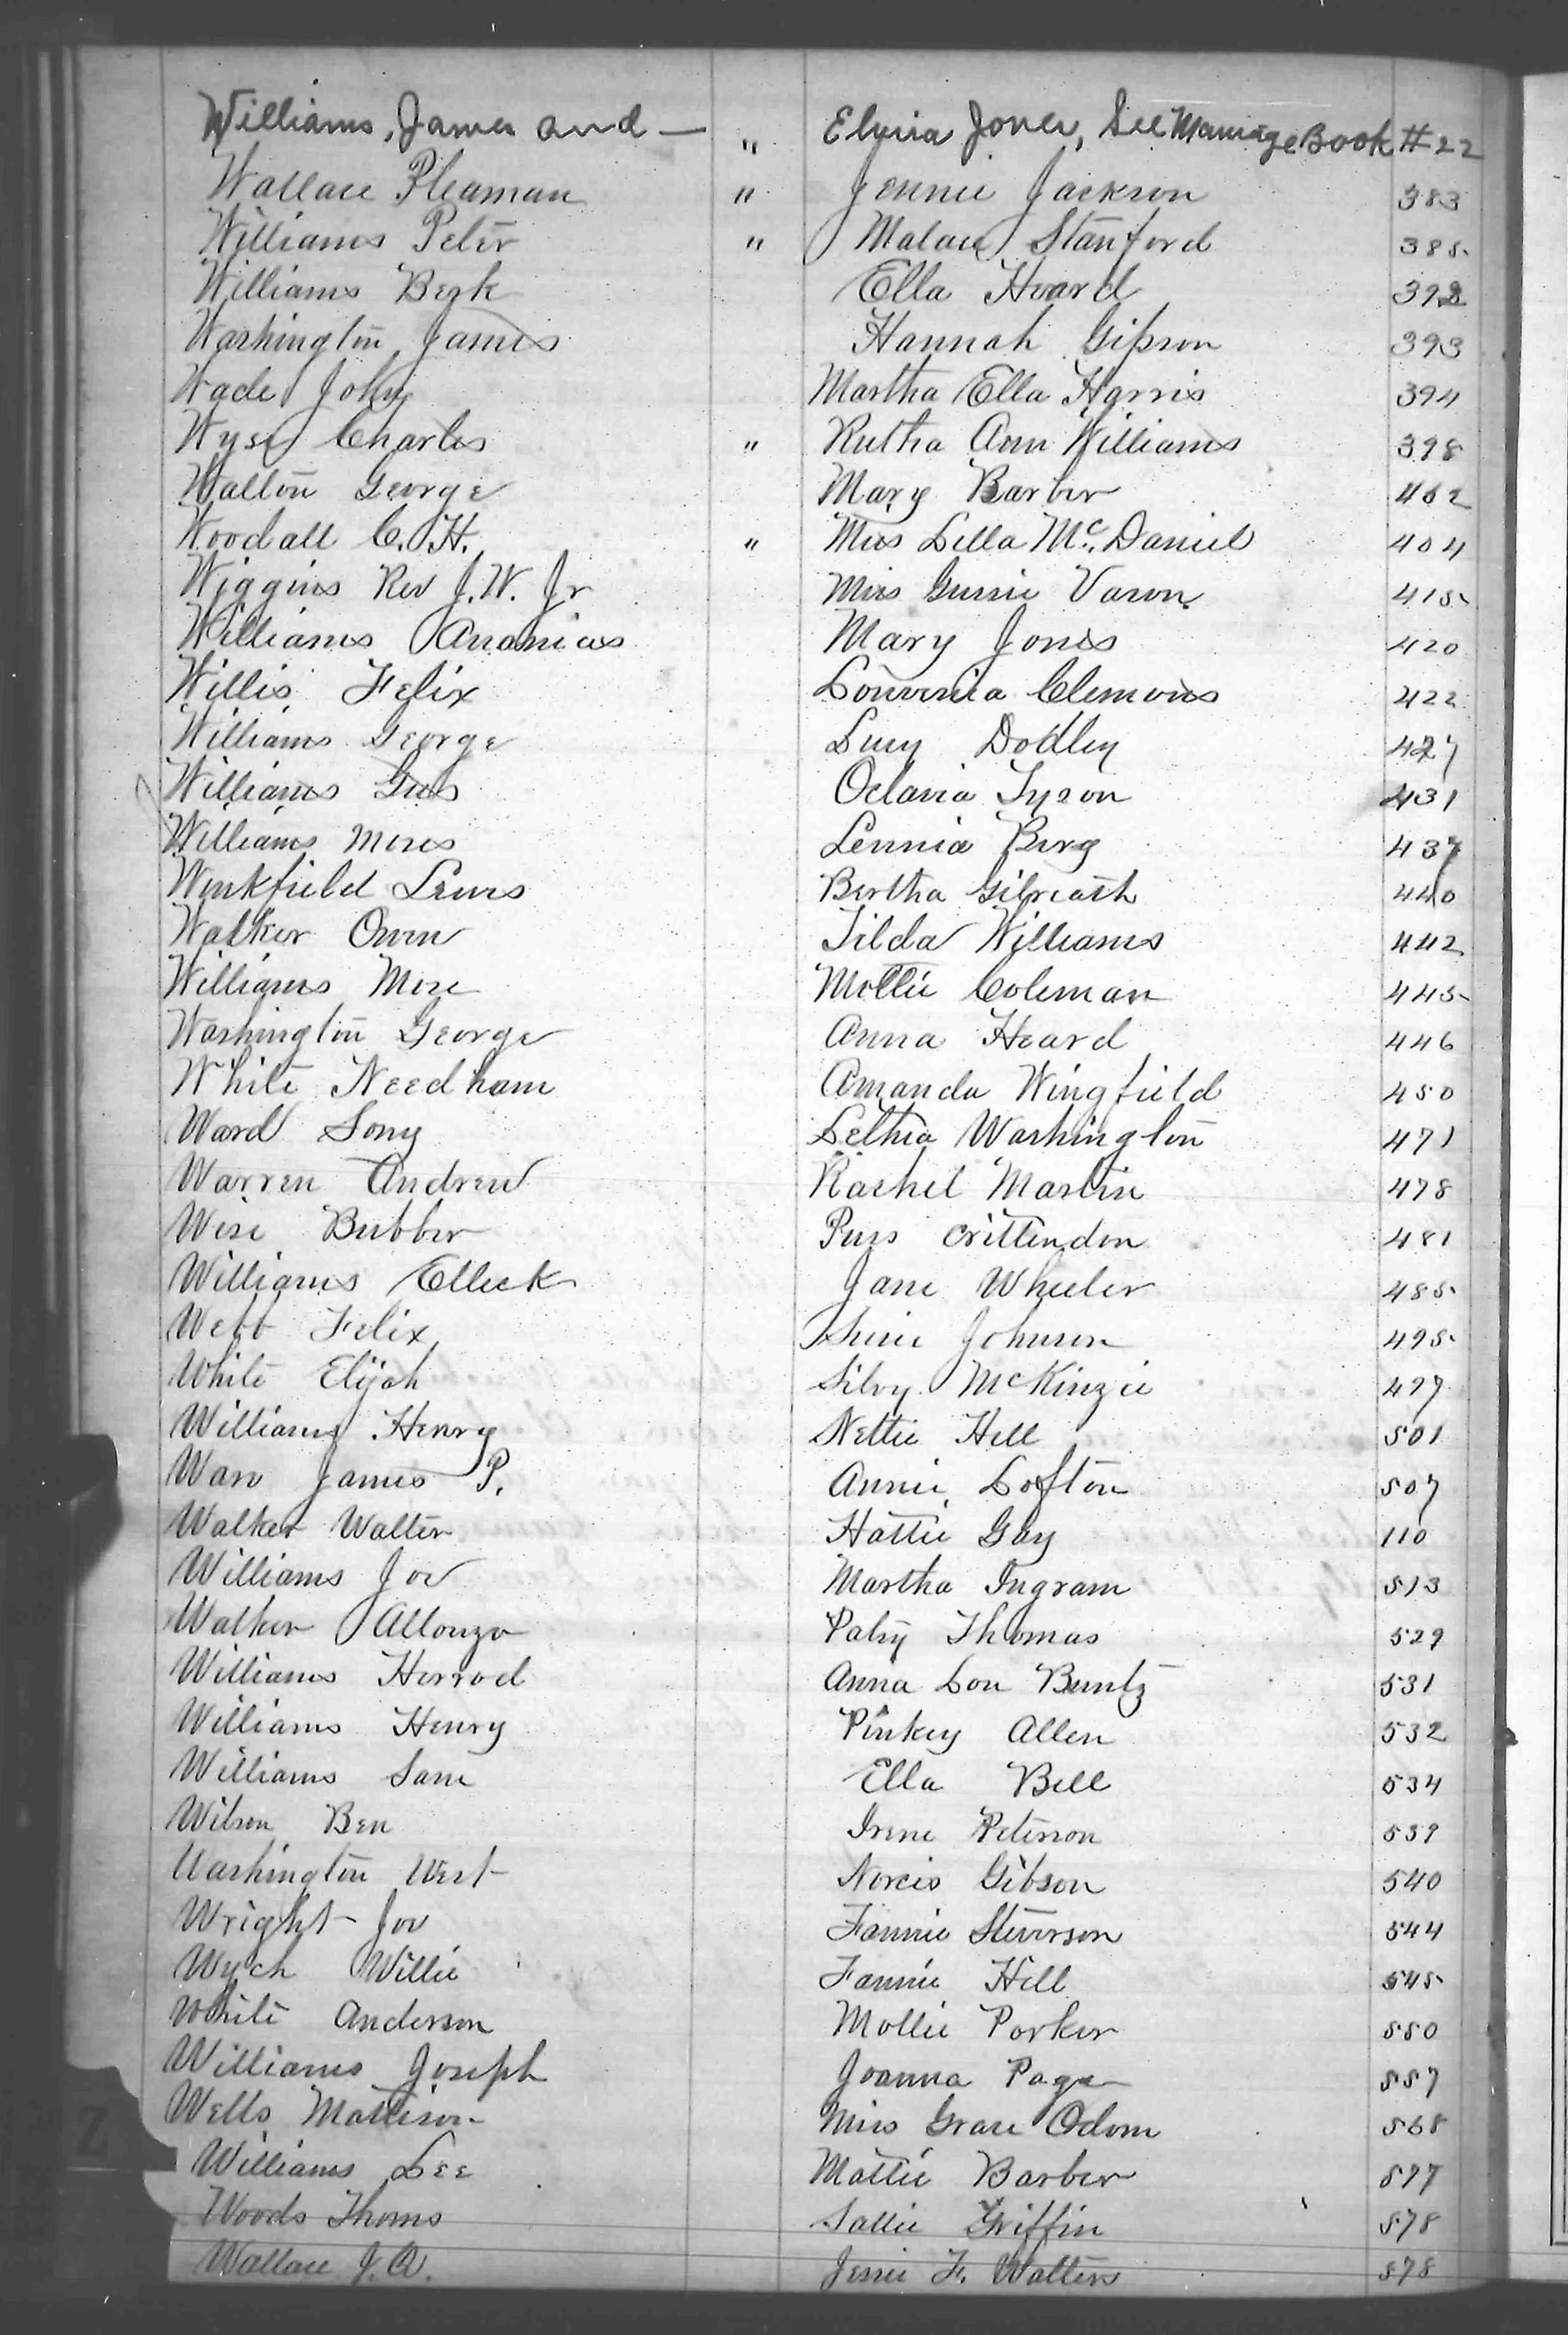 Williams, James and — " Elvira Jones, See Marriage Book #22
Wallace Pleaman " Jennie Jackson 383
Williams Peter " Malacy Stanford 385
Williams Berk Ella Hoard 392
Washington James Hannah Gipson 393
Wade John Martha Ella Harris 394
Wyse Charles " Rutha Ann Williams 398
Walton George Mary Barber 402
Woodall C. H. " Miss Lilla McDaniel 404
Wiggins Rev J. W. Jr Miss Gussie Vason 415
Williams Ananias Mary Jones 420
Willis Felix Louvenia Clemons 422
Williams George Lucy Dodley 427
Williams Gus Octavia Tyson 431
Williams Moses Lennia Berg 437
Winkfield Lewis Bertha Gilreath 440
Walker Owen Tilda Williams 442
Williams Mose Mollie Coleman 445
Washington George Anna Heard 446
White Needham Amanda Wingfield 450
Ward Sony Lethia Washington 471
Warren Andrew Rachel Martin 478
Wise Bubber Puss Crittendon 481
Williams Elleck Jane Wheeler 485
Webb Felix Johnson 495
White Elijah Silvy McKinzie 497
Williams Henry Nettie Hill 501
Ware James P. Annie Lofton 507
Walker Walter Hattie Gay 110
Williams Joe Martha Ingram 513
Walker Allonzo Patsy Thomas 529
Williams Herrod Anna Lou Buntz 531
Williams Henry Pinkey Allen 532
Williams Sam Ella Bell 534
Wilson Ben Irene Peterson 539
Washington West Norcis Gibson 540
Wright Joe Fannie Steverson 544
Wych Willie Fannie Hill 545
White Anderson Mollie Porker 550
Williams Joseph Joanna Page 557
Wells Mattison Miss Grace Odom 568
Williams Lee Mattie Barber 577
Woods Thoms Sallie Griffin 578
Wallace J. A. Jessie F. Walters 578
Z